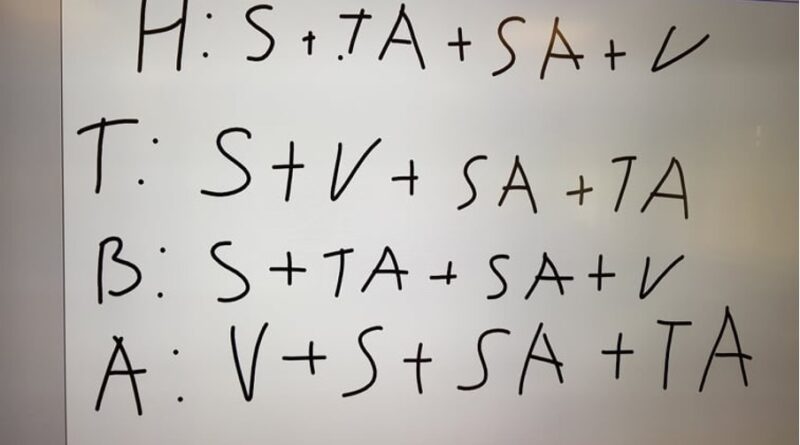 H: S + TA + SA + V
T: S + V + SA + TA
B: S + TA + SA + V
A: V + S + SA + TA